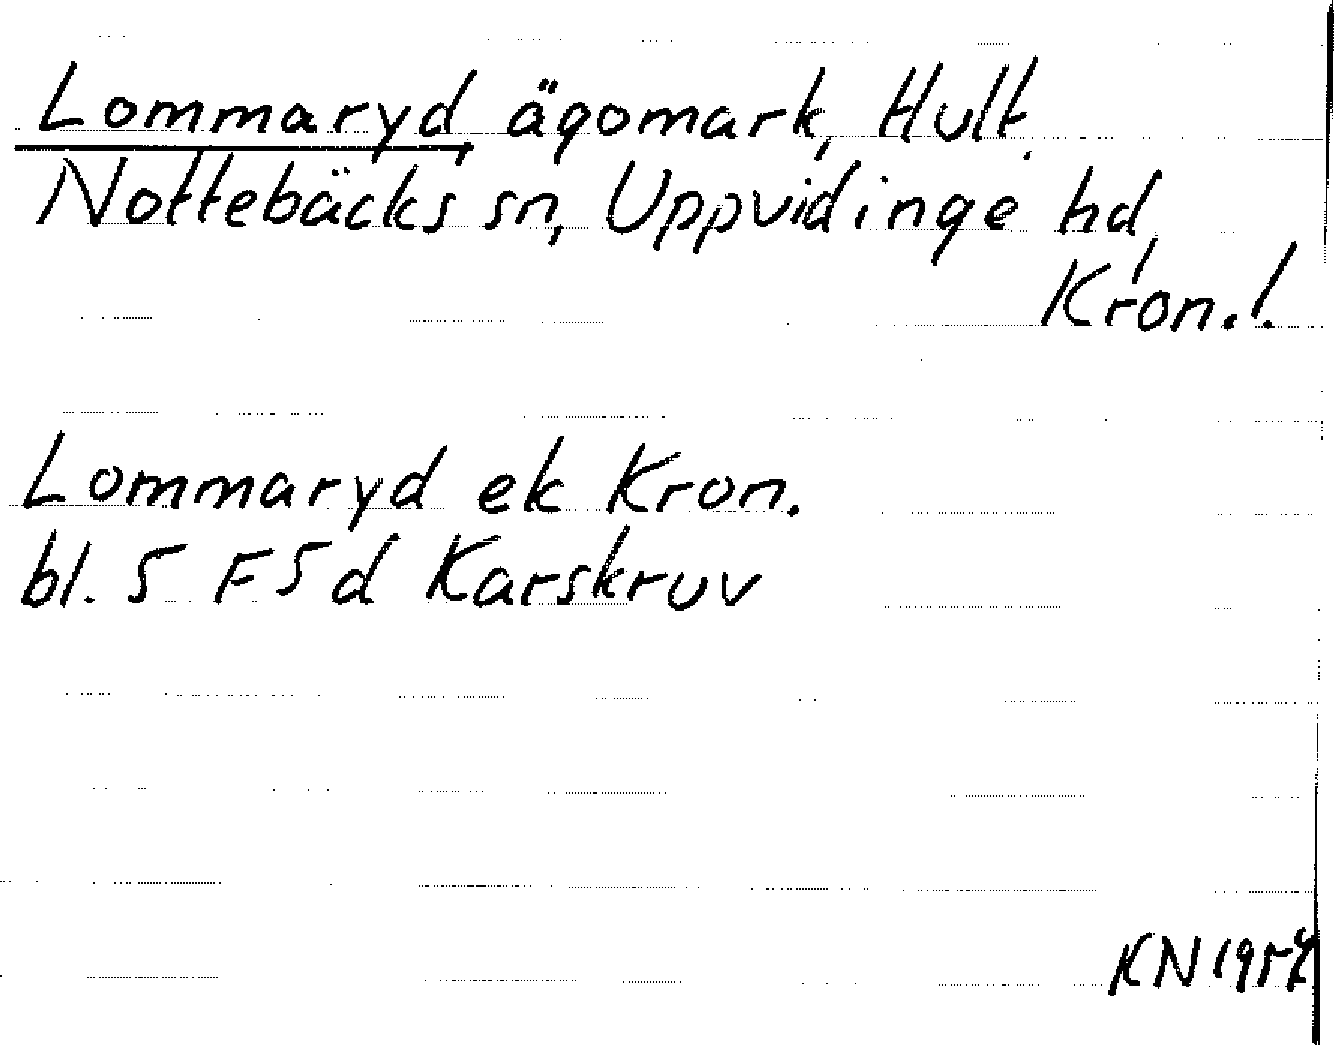 Lommaryd, ägomark, Hult.
Nottebäcks sn, Uppvidinge hd,
Kron. l.
Lommaryd ek Kron.
bl. 5 F 5 d Karskruv
KN